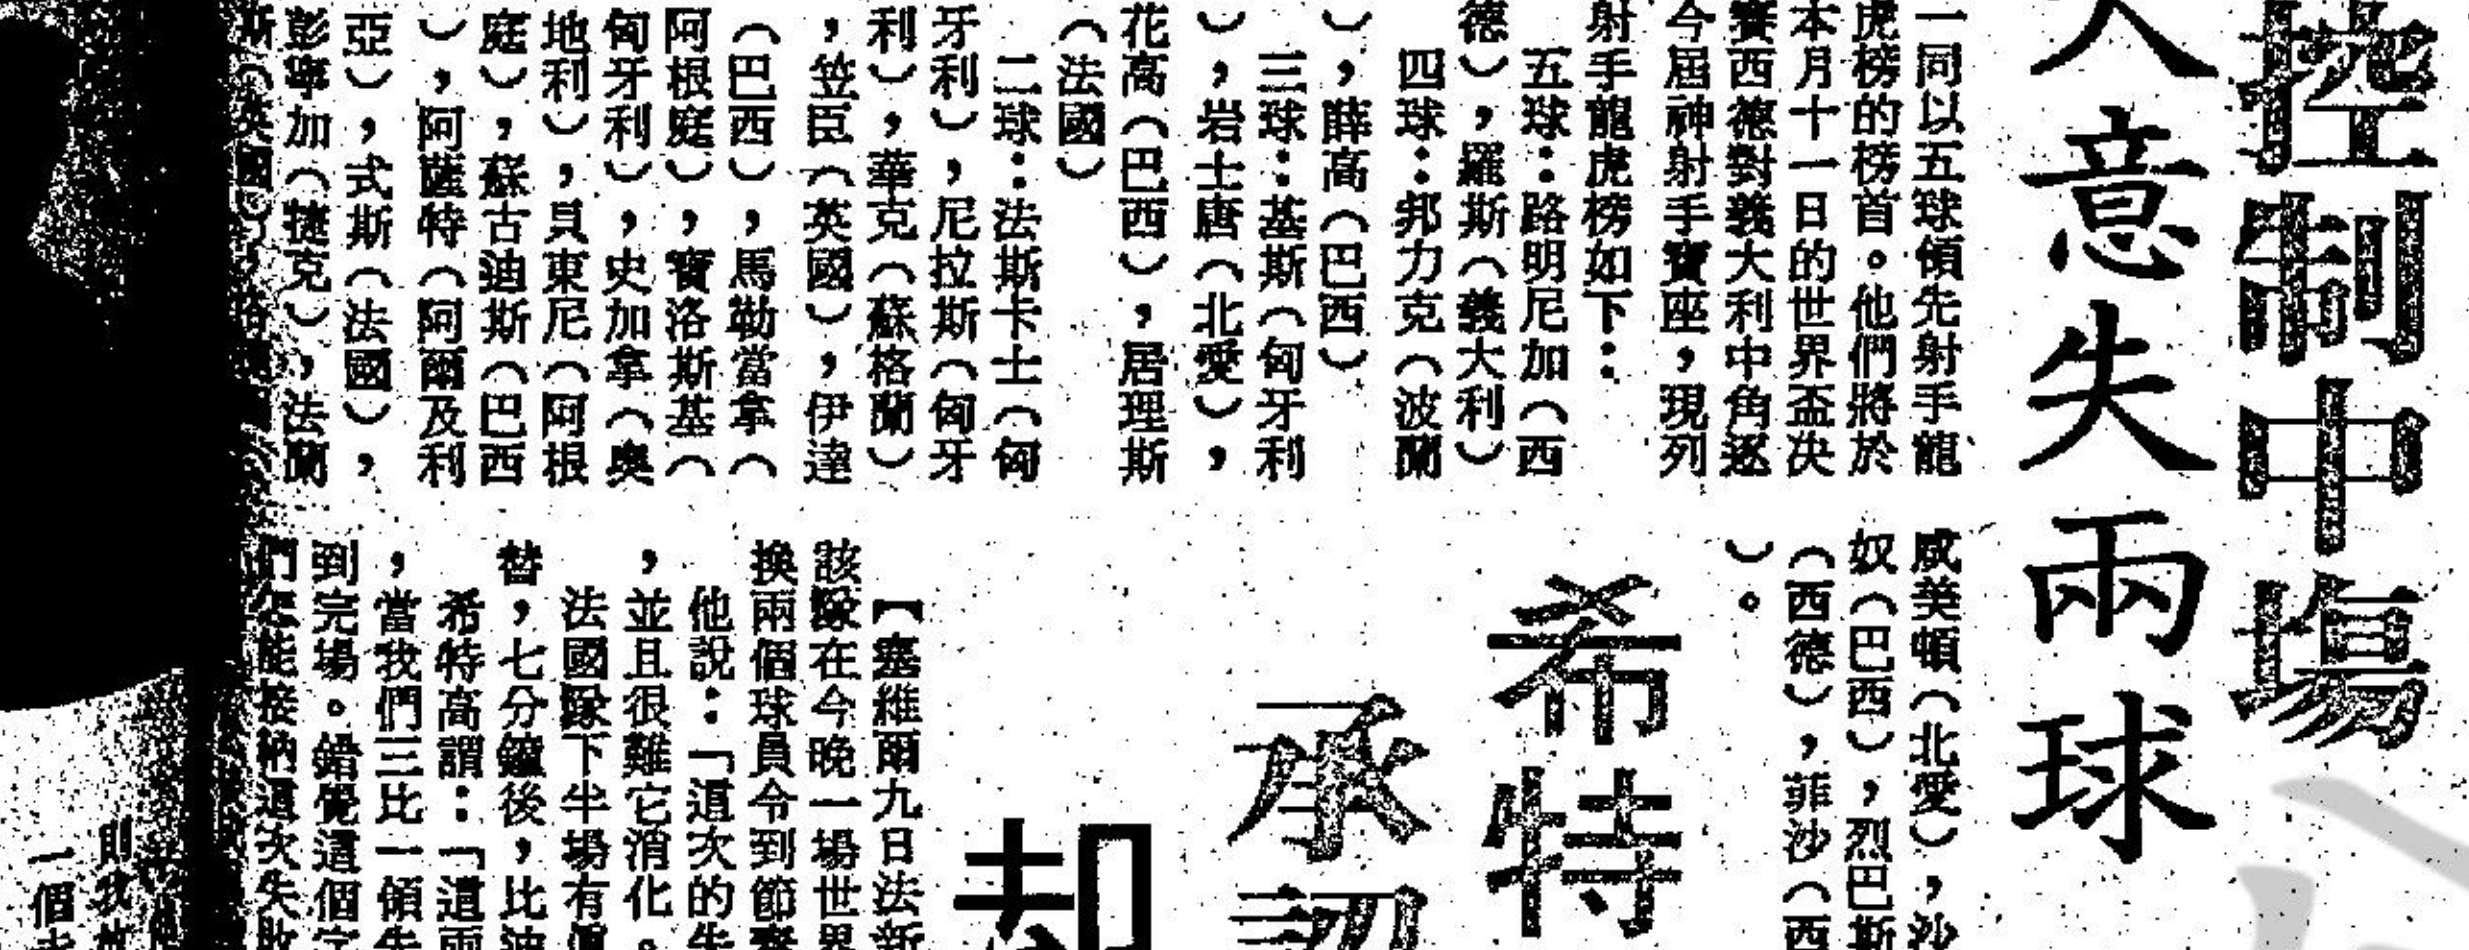 控制中場
大意失兩球
一同以五球領先射手龍
虎榜的榜首。他們將於
本月十一日的世界盃决
賽西德對義大利中角逐
今屆神射手寶座，現列
射手龍虎榜如下：
五球：路明尼加（西
德），羅斯（義大利）
四球：邦力克（波蘭
），薛高（巴西）
三球：基斯（匈牙利
），岩士唐（北愛），
花高（巴西），居理斯
（法國）
二球：法斯卡士（匈
牙利），尼拉斯（匈牙
利），華克（蘇格蘭）
，笠臣（英國），伊達
（巴西），馬勒當拿（
阿根庭），寶洛斯基（
匈牙利），史加拿（奧
地利），貝東尼（阿根
庭），蘇古迪斯（巴西
），阿薩特（阿爾及利
亞），式斯（法國），
彭寧加（捷克），法蘭
斯（英國）
威美頓（北愛），沙
奴（巴西），烈巴斯
（西德），菲沙（西
）。
希特
承認
却
【塞維爾九日法新
該隊在今晚一場世界
換兩個球員令到節奏
他說：「這次的失
，並且很難它消化。
法國隊下半場有
替，七分鐘後，比迪
希特高謂：「這兩
，當我們三比一領先
到完場。錯覺這個
們怎能接納這次失敗
則我
一個